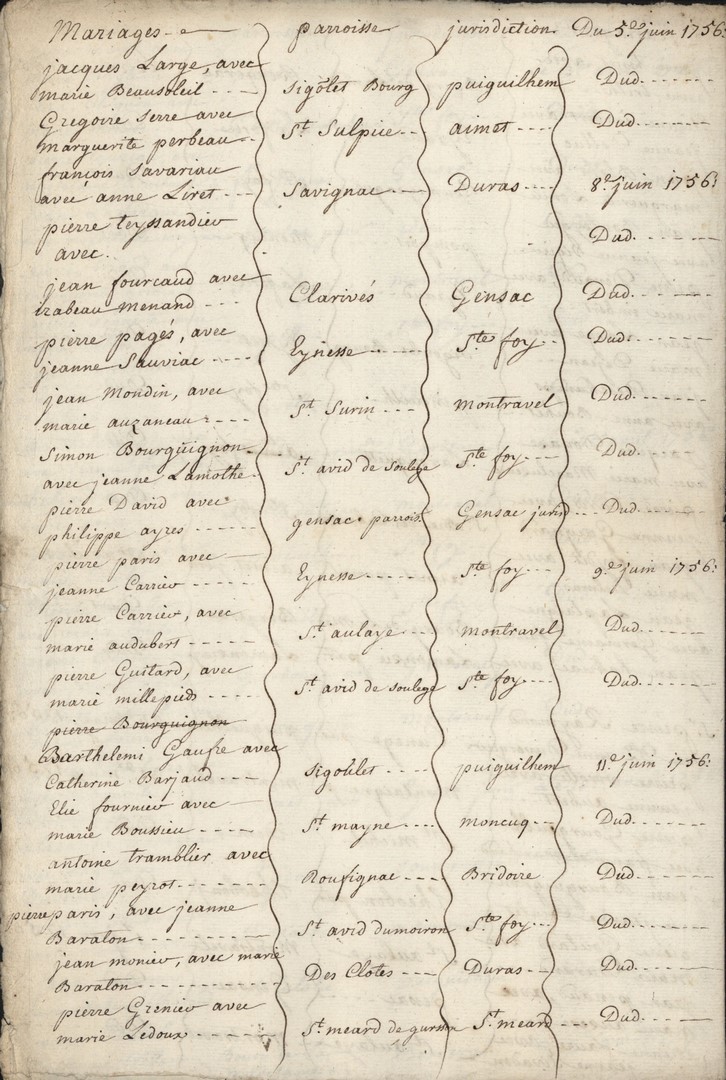 Mariages parroisse jurisdiction Du 5.e juin 1756.
jacques Large, avec
marie Beausoleil sigolet Bourg puiguilhem Dud.
Gregoire serre avec
marguerite perbeau St. Sulpice aimet Dud.
françois savariau
avec anne Liret Savignac Duras 8.e juin 1756.
pierre teyssandier
avec. Dud.
jean fourcaud avec
izabeau menand Clarivés Gensac Dud.
pierre pagés, avec
jeanne Sauviac Eynesse Ste foy Dud.
jean Mondin, avec
marie auzaneau St. Surin montravel Dud.
Simon Bourguignon
avec jeanne Lamothe St. avid de soulege Ste foy Dud.
pierre David avec
philippe ayres gensac parrois. Gensac jurisd Dud.
pierre paris avec
jeanne Carrier Eynesse Ste foy 9.e juin 1756.
pierre Carrier, avec
marie audubert St. aulaye montravel Dud.
pierre Guitard, avec
marie millepieds St. avid de soulege Ste foy Dud.
pierre Bourguignon
Barthelemi Gaufre avec
Catherine Barjaud sigoulet puiguilhem 11.e juin 1756.
Elie fournier avec
marie Boussieu St. mayne moncuq Dud.
antoine tramblier avec
marie peyrot Roufignac Bridoire Dud.
pierre paris, avec jeanne
Baraton St. avid dumoiron Ste foy Dud.
jean monier, avec marie
Baraton Des Clotes Duras Dud.
pierre Grenier avec
marie Ledoux St. meard de gurson St. meard Dud.